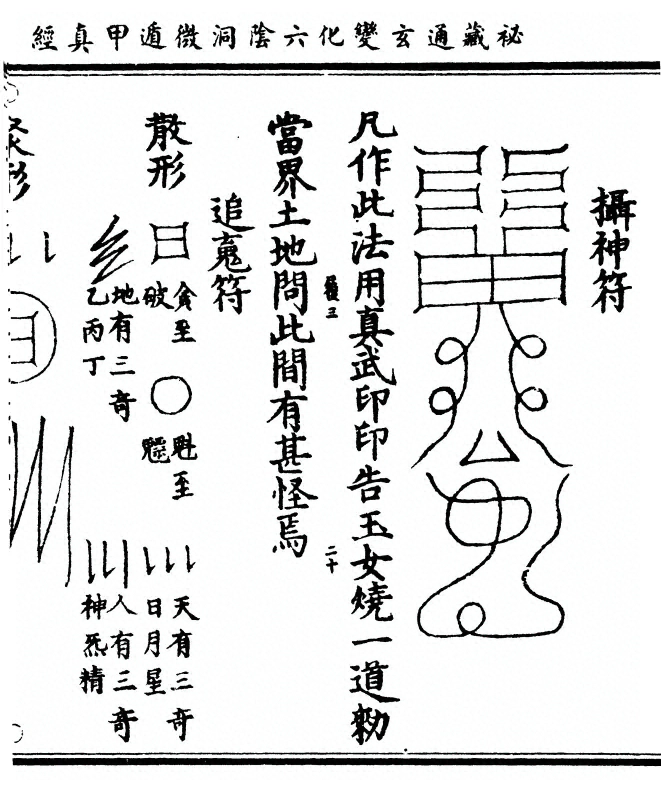 祕藏通玄變化六陰洞微遁甲真經
攝神符
凡作此法用真武印印告玉女燒一道勑
二十
當界土地問此間有甚怪焉
追䰟符
散形
貪至
破
魁至
魒
天有三奇
日月星
地有三奇
乙丙丁
人有三奇
神炁精